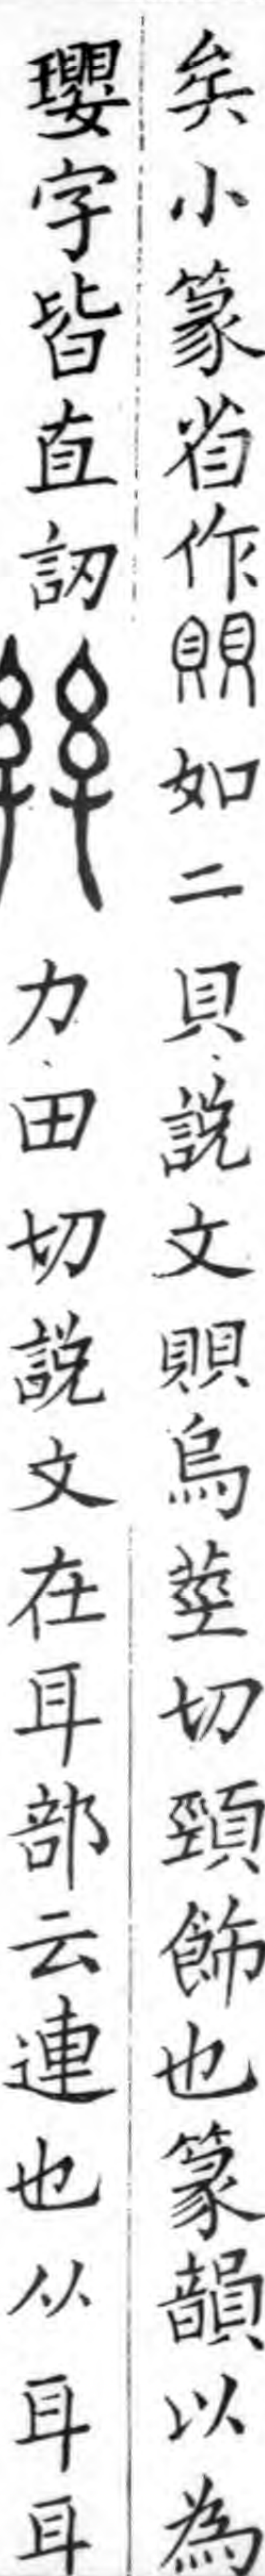 矣小篆省作賏如二貝說文賏烏莖切頸飾也篆韻以為
瓔字皆直訒力田切說文在耳部云連也从耳耳